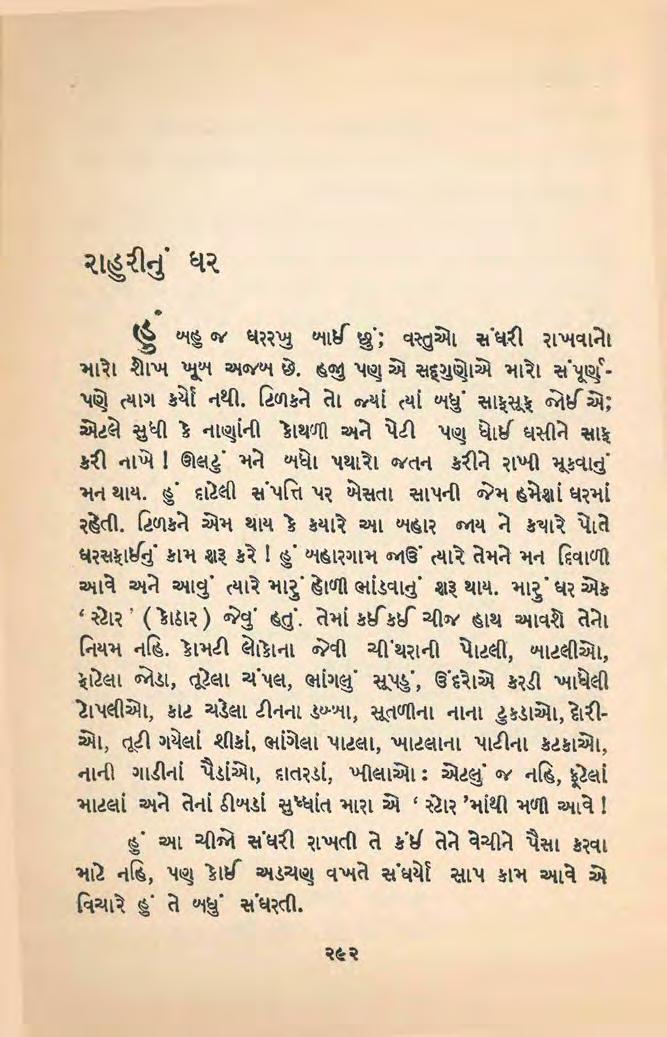 રાહુરીનું ઘર
હું બહુ જ ઘરરખુ બાઈ છું; વસ્તુઓ સંઘરી રાખવાનો
મારો શોખ ખૂબ અજબ છે. હજી પણ એ સદ્ગુણોએ મારો સંપૂર્ણ-
પણે ત્યાગ કર્યો નથી. ટિળકને તો જ્યાં ત્યાં બધું સાફસૂફ જોઈએ;
એટલે સુધી કે નાણાંની કોથળી અને પેટી પણ ધોઈ ઘસીને સાફ
કરી નાખે ! ઊલટું મને બધો પથારો જતન કરીને રાખી મૂકવાનું
મન થાય. હું દાટેલી સંપત્તિ પર બેસતા સાપની જેમ હમેશાં ઘરમાં
રહેતી. ટિળકને એમ થાય કે કયારે આ બહાર જાય ને કયારે પોતે
ઘરસફાઈનું કામ શરૂ કરે ! હું બહારગામ જાઉં ત્યારે તેમને મન દિવાળી
આવે અને આવું ત્યારે મારું હોળી ભાંડવાનું શરૂ થાય. મારું ઘર એક
‘ સ્ટોર ’ ( કોઠાર ) જેવું હતું. તેમાં કઈ કઈ ચીજ હાથ આવશે તેનો
નિયમ નહિ. કામટી લોકોના જેવી ચીંથરાની પોટલી, બાટલીઓ,
ફાટેલા જોડા, તૂટેલા ચંપલ, ભાંગલું સૂપડું, ઉંદરોએ કરડી ખાધેલી
ટોપલીઓ, કાટ ચડેલા ટીનના ડબ્બા, સૂતળીના નાના ટુકડાઓ, દોરી-
ઓ, તૂટી ગયેલાં શીકાં, ભાંગેલા પાટલા, ખાટલાના પાટીના કટકાઓ,
નાની ગાડીનાં પૈડાંઓ, દાતરડાં, ખીલાઓ : એટલું જ નહિ, ફૂટેલાં
માટલાં અને તેનાં ઠીબડાં સુધ્ધાંત મારા એ ‘ સ્ટોર ’માંથી મળી આવે !
હું આ ચીજો સંઘરી રાખતી તે કંઈ તેને વેચીને પૈસા કરવા
માટે નહિ, પણ કોઈ અડચણ વખતે સંઘર્યો સાપ કામ આવે એ
વિચારે હું તે બધું સંઘરતી.
૨૯૨